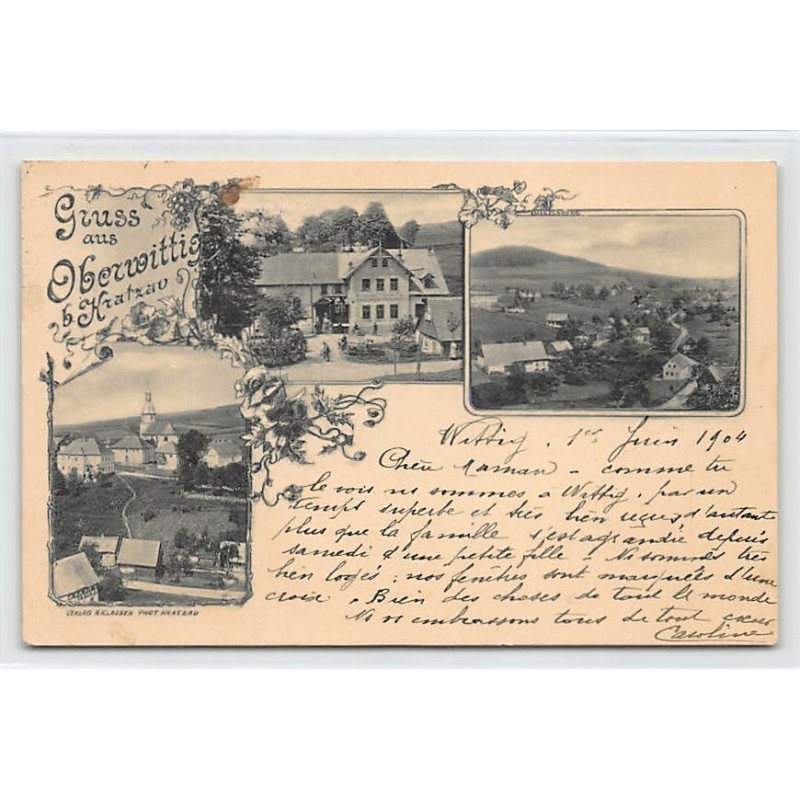 Gruss
aus
Oberwittig
b. Kratzau
Wittig, 1er Juin 1904
Chère Maman - comme tu
le vois ns sommes à Wittig, par un
temps superbe et très bien reçus, d'autant
plus que la famille s'est agrandie depuis
samedi d'une petite fille - Ns sommes très
bien logés ; nos fenêtres sont marquées d'une
croix. Bien des choses de tout le monde
Ns vs embrassons tous de tout cœur
Caroline
VERLAG R. KLASSEN PHOT. KRATZAU